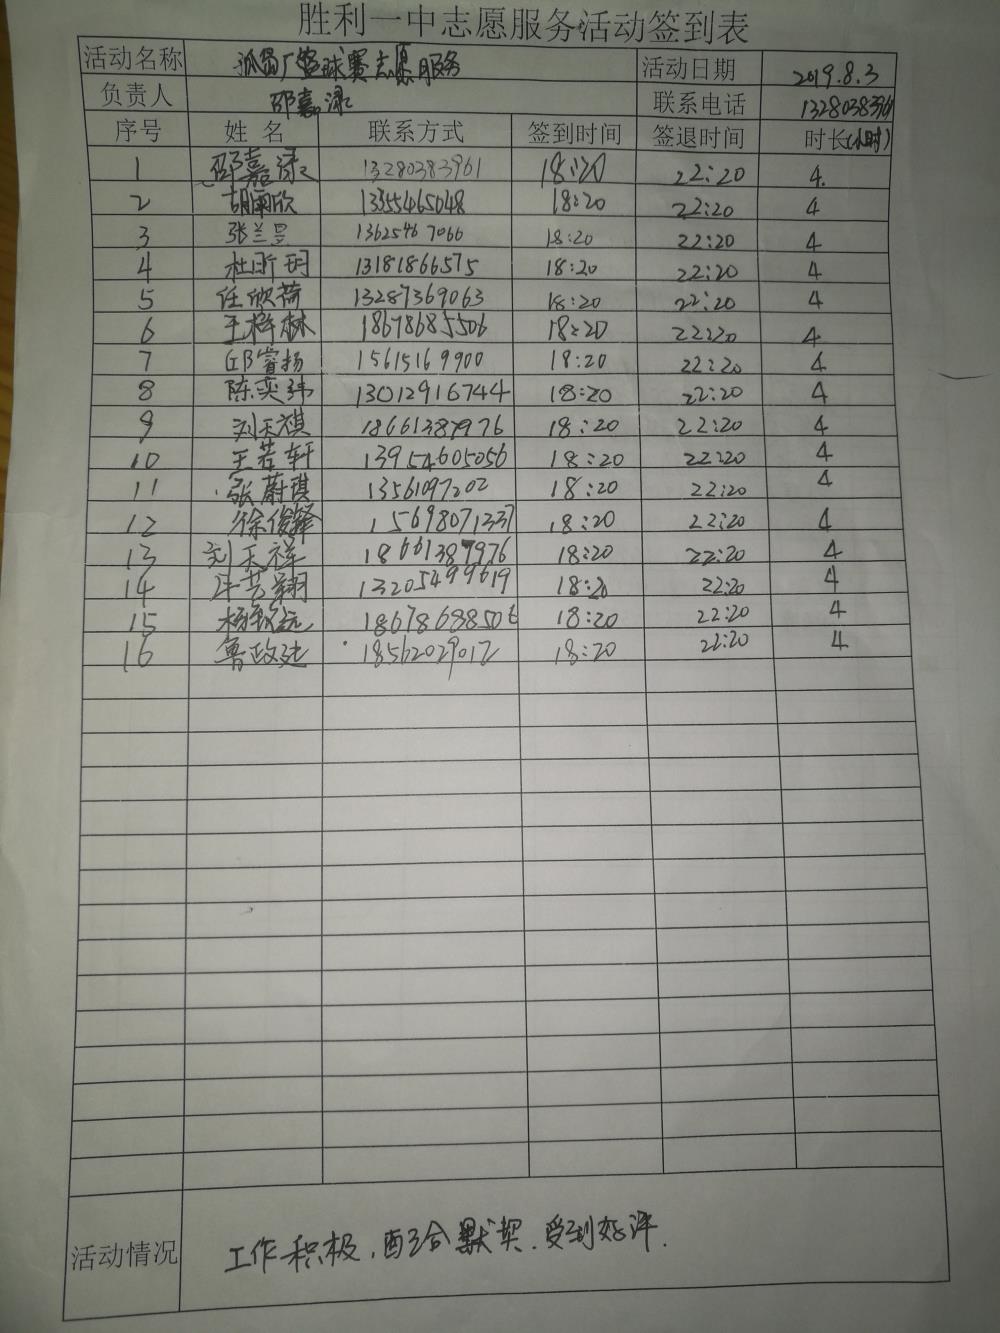 胜利一中志愿服务活动签到表
活动名称 篮球赛志愿服务 活动日期 2019.8.3
负责人 邵嘉渌 联系电话 13280383961
序号 姓 名 联系方式 签到时间 签退时间 时长(小时)
1 邵嘉渌 13280383961 18:20 22:20 4
2 胡闻欣 13355465048 18:20 22:20 4
3 张兰昱 13625467066 18:20 22:20 4
4 杜昕玥 13181866575 18:20 22:20 4
5 任欣荷 13287369063 18:20 22:20 4
6 王梓林 18678685506 18:20 22:20 4
7 邱睿扬 15615169900 18:20 22:20 4
8 陈奕玮 13012916744 18:20 22:20 4
9 刘天祺 18661387976 18:20 22:20 4
10 王若轩 13954605056 18:20 22:20 4
11 张蔚琪 13561097202 18:20 22:20 4
12 徐俊铎 15698071337 18:20 22:20 4
13 刘天祥 18661387976 18:20 22:20 4
14 翔 13205499619 18:20 22:20 4
15 杨远 18678688506 18:20 22:20 4
16 鲁政廷 18562029012 18:20 22:20 4
活动情况 工作积极,配合默契.受到好评.